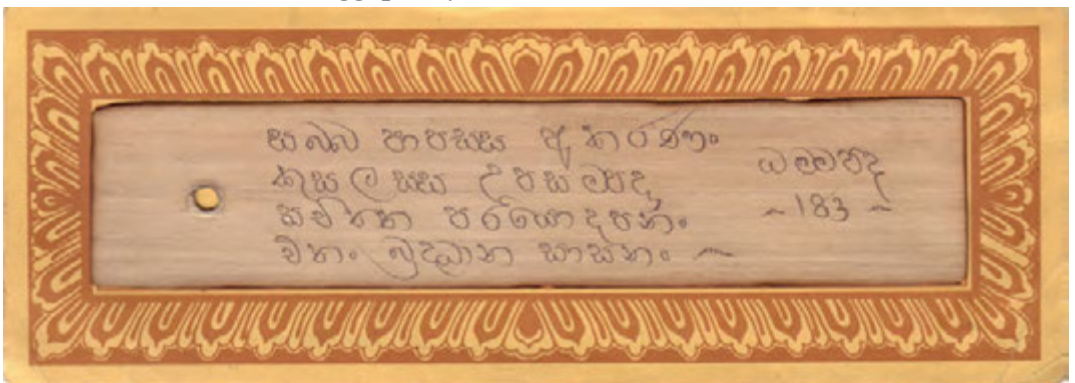 සබ්බ පාපස්ස අකරණං
කුසලස්ස උපසම්පදා
සචිත්ත පරියොදපනං
එතං බුද්ධාන සාසනං
ධම්මපද
~183~